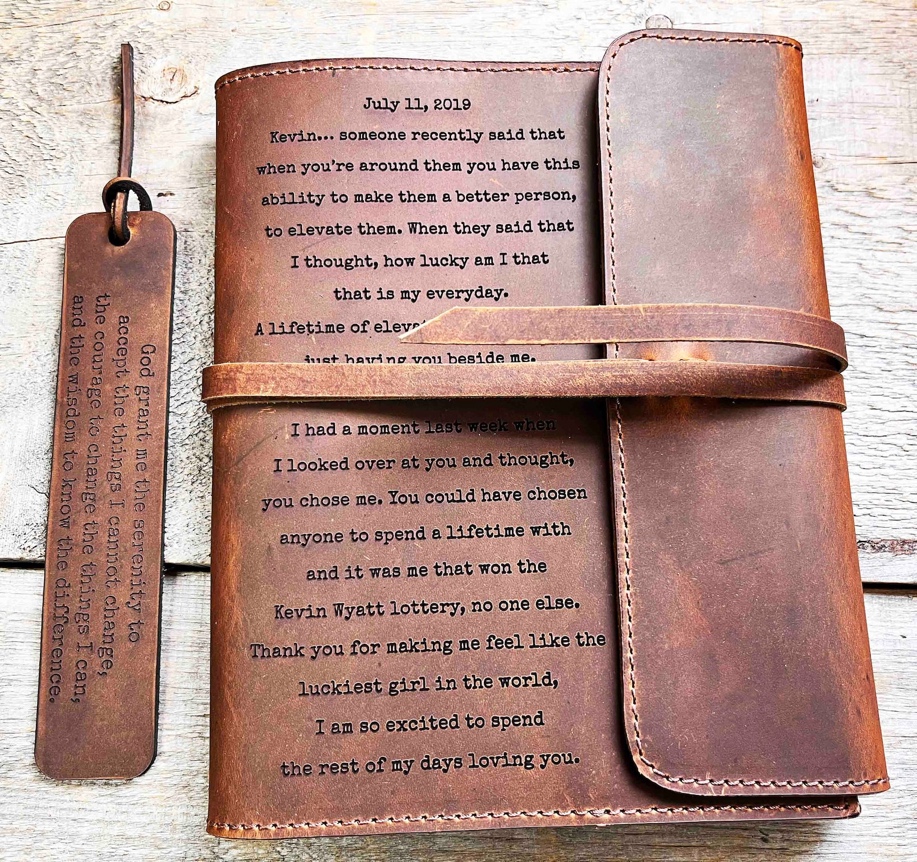 July 11, 2019
Kevin... someone recently said that
when you're around them you have this
ability to make them a better person,
to elevate them. When they said that
I thought, how lucky am I that
that is my everyday.
A lifetime of
just having you beside me.
I had a moment last week when
I looked over at you and thought,
you chose me. You could have chosen
anyone to spend a lifetime with
and it was me that won the
Kevin Wyatt lottery, no one else.
Thank you for making me feel like the
luckiest girl in the world,
I am so excited to spend
the rest of my days loving you.
God grant me the serenity to
accept the things I cannot change,
the courage to change the things I can,
and the wisdom to know the difference.